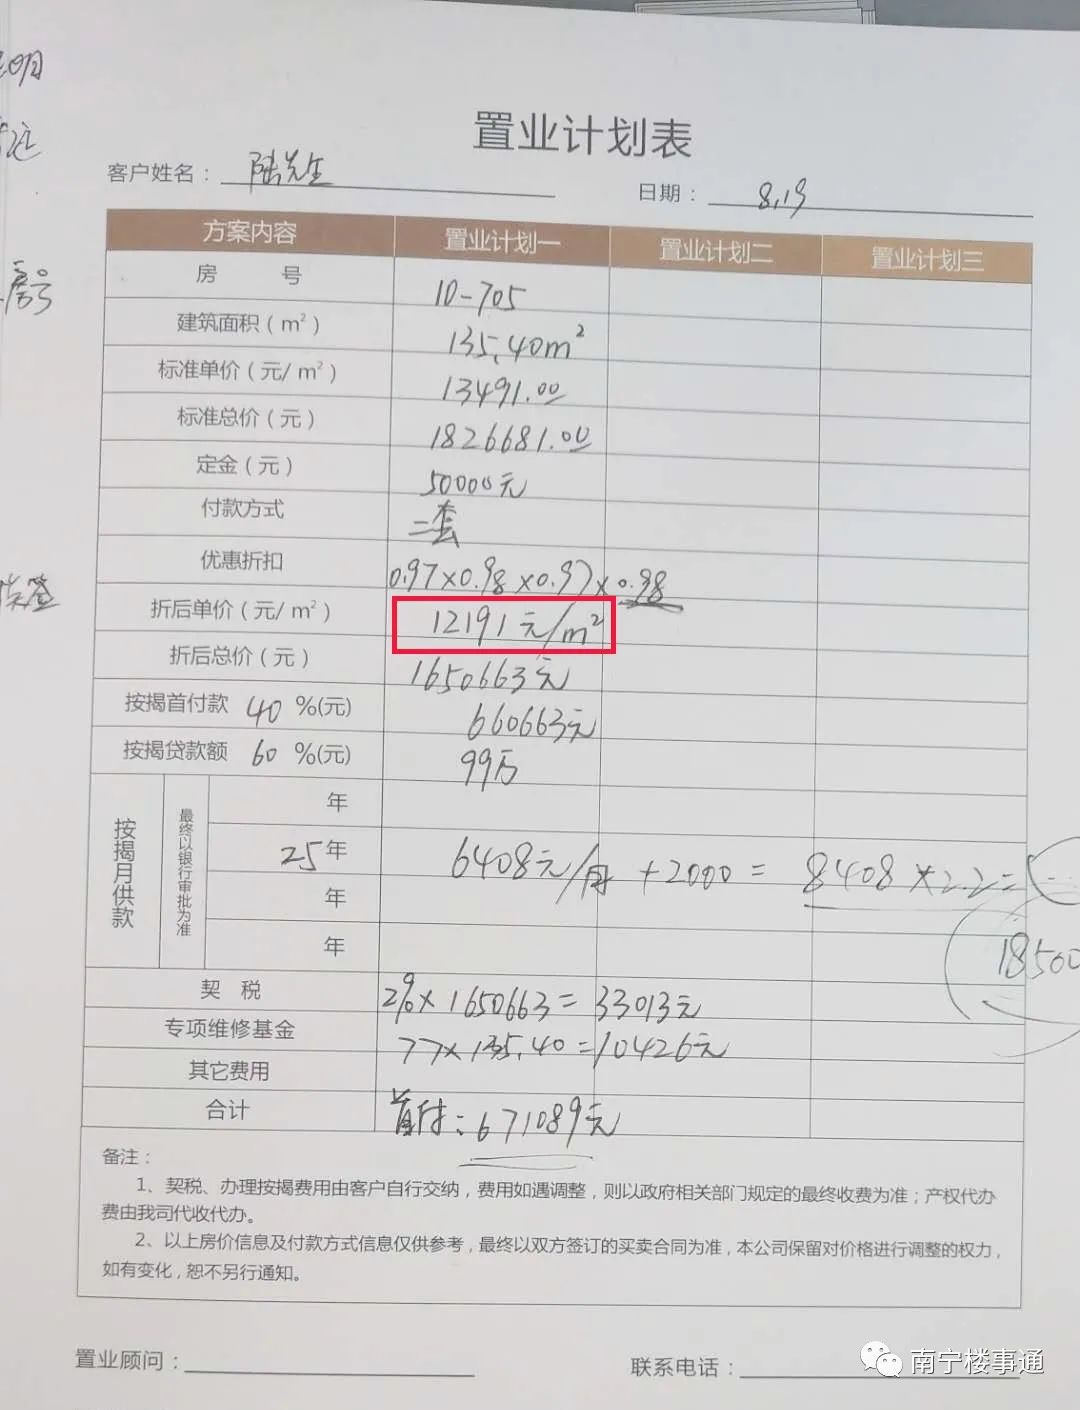 置业计划表
客户姓名： 陆先生 日期： 8.19
方案内容 置业计划一 置业计划二 置业计划三
房 号 10-705
房号
建筑面积（m²） 135.40m²
标准单价（元/m²） 13491.00
标准总价（元） 1826681.00
定金（元） 50000元
付款方式 二套
优惠折扣 0.97×0.98×0.97×0.98
折后单价（元/m²） 12191元/m²
折后总价（元） 1650663元
按揭首付款 40 %(元) 660663元
按揭贷款额 60 %(元) 99万
按揭月供款
最终以银行审批为准
年
25年 6408元/月 +2000 = 8408×2.2=
18500
年
年
契 税 2%×1650663=33013元
专项维修基金 77×135.40=10426元
其它费用
合计 首付：671089元
备注：
1、契税、办理按揭费用由客户自行交纳，费用如遇调整，则以政府相关部门规定的最终收费为准；产权代办
费由我司代收代办。
2、以上房价信息及付款方式信息仅供参考，最终以双方签订的买卖合同为准，本公司保留对价格进行调整的权力，
如有变化，恕不另行通知。
置业顾问： 联系电话：
南宁楼事通